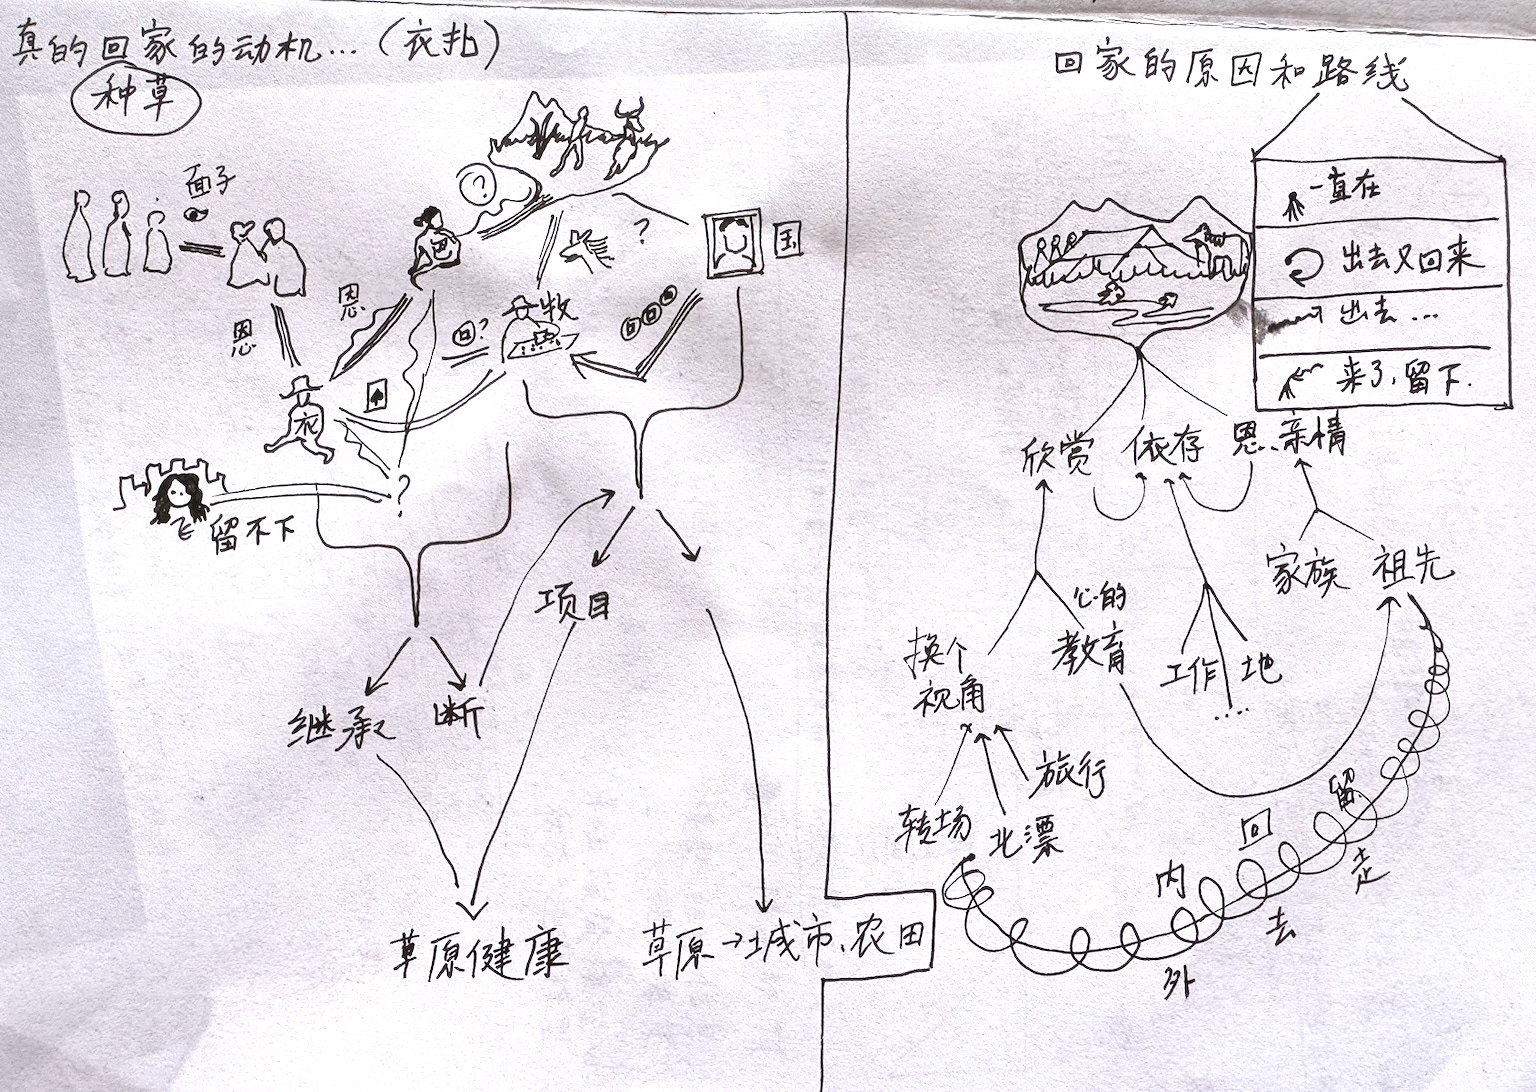 真的回家的动机…（衣扑）
种草
面子
恩
恩
?
巴
?
国
牧
回?
衣
?
飞 留不下
项目
继承
断
草原健康
草原→城市、农田
回家的原因和路线
一直在
出去又回来
出去…
来了,留下.
欣赏
依存
恩、亲情
家族
祖先
心的
教育
换个
视角
工作
地
....
旅行
转场
北漂
留
回
走
内
去
外